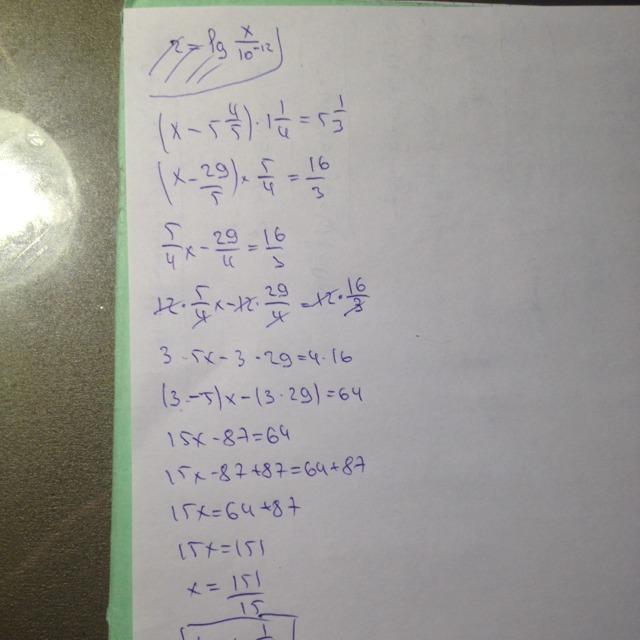 (x - 5 4/5) · 1 1/4 = 5 1/3
(x - 29/5) · 5/4 = 16/3
5/4 x - 29/4 = 16/3
12 · 5/4 x - 12 · 29/4 = 12 · 16/3
3 · 5x - 3 · 29 = 4 · 16
(3 · 5)x - (3 · 29) = 64
15x - 87 = 64
15x - 87 + 87 = 64 + 87
15x = 64 + 87
15x = 151
x = 151/15